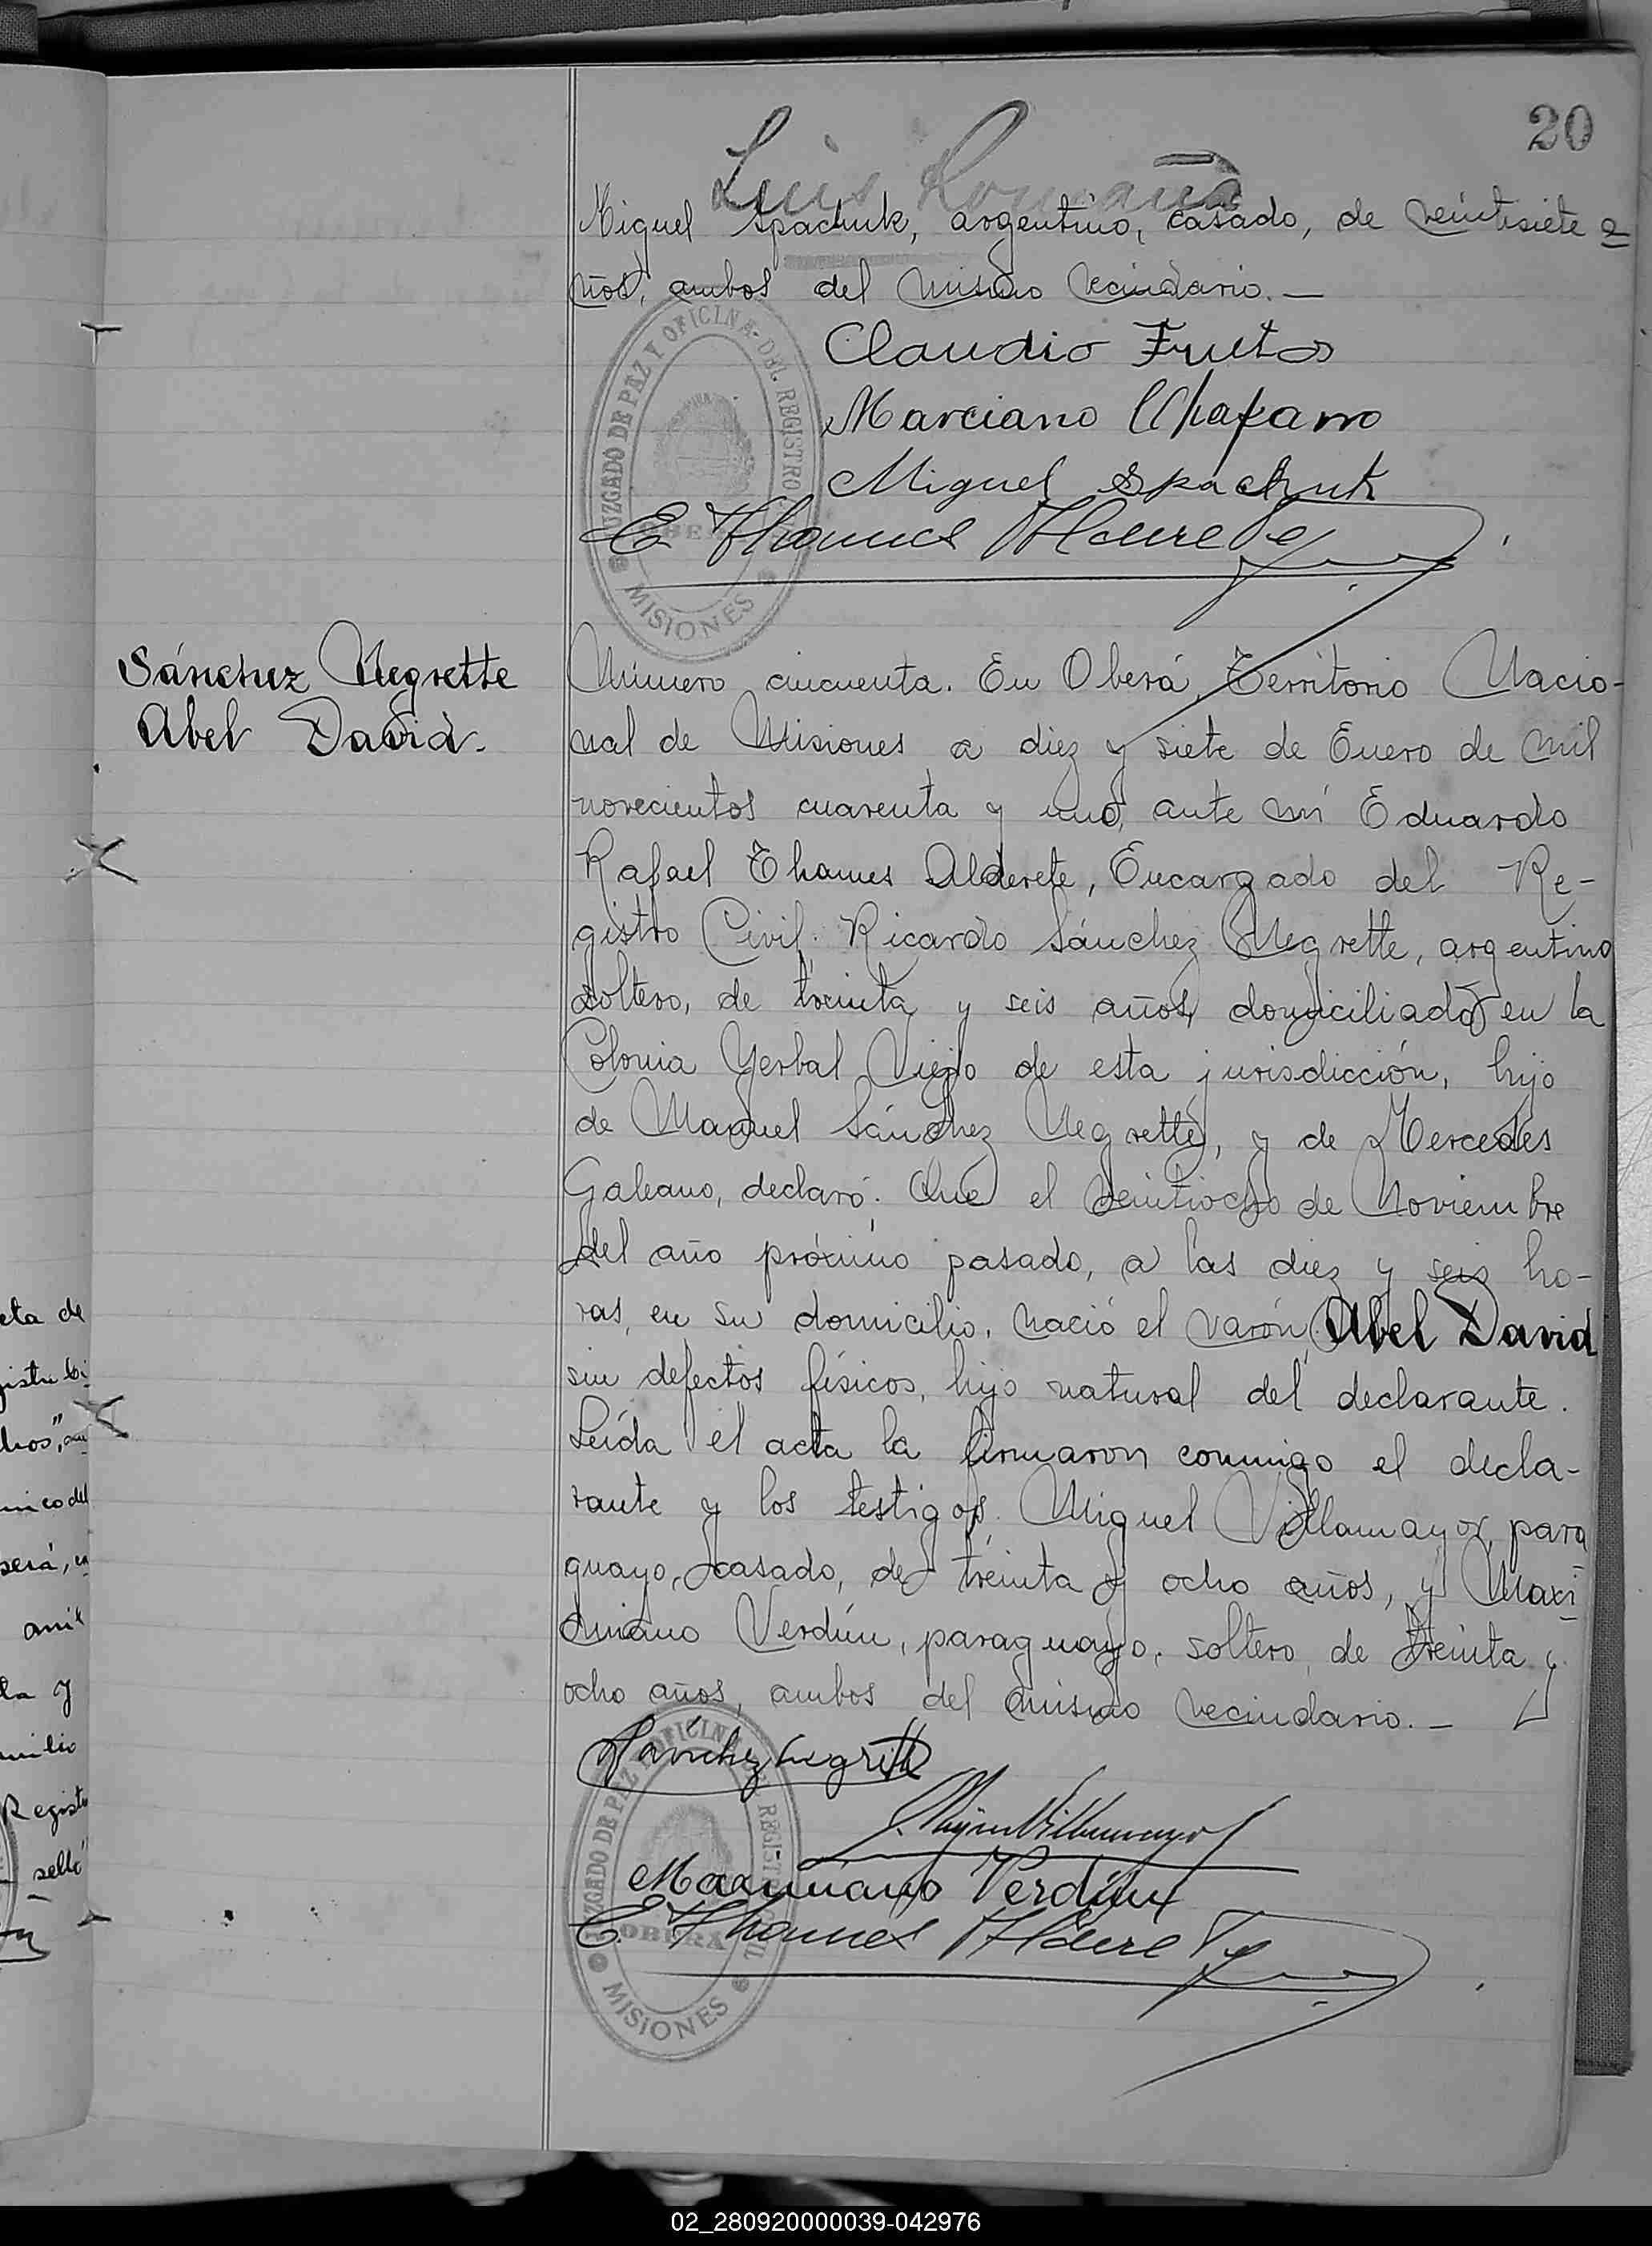 20
Luis Romaña
Miguel Spachuk, argentino, casado, de veintisiete a
ños, ambos del mismo vecindario.—
Claudio Frutos
Marciano Chaparro
Miguel Spachuk
E. Thames Alderete
JUZGADO DE PAZ Y OFICINA DEL REGISTRO CIVIL
OBERÁ
MISIONES
Sánchez Negrette
Abel David.
Número cincuenta. En Oberá, Territorio Nacio-
nal de Misiones a diez y siete de Enero de mil
novecientos cuarenta y uno, ante mí Eduardo
Rafael Thames Alderete, Encargado del Re-
gistro Civil: Ricardo Sánchez Negrette, argentino
soltero, de treinta y seis años, domiciliado en la
Colonia Yerbal Viejo de esta jurisdicción, hijo
de Manuel Sánchez Negrette, y de Mercedes
Galeano, declaró: Que el veintiocho de Noviembre
del año próximo pasado, a las diez y seis ho-
ras, en su domicilio, nació el varón, Abel David
sin defectos físicos, hijo natural del declarante.
Leída el acta la firmaron conmigo el decla-
rante y los testigos: Miguel Villamayor, para
guayo, casado, de treinta y ocho años, y Maxi
miano Verdún, paraguayo, soltero, de treinta y
ocho años, ambos del mismo vecindario.—
Sánchez Negrette
Miguel Villamayor
Maximiano Verdún
E. Thames Alderete
JUZGADO DE PAZ Y OFICINA DEL REGISTRO CIVIL
OBERÁ
MISIONES
eta de
gistro Ci
hos",
nico del
berá, en
mil
ta y
milio
Registro
sello"
02_280920000039-042976